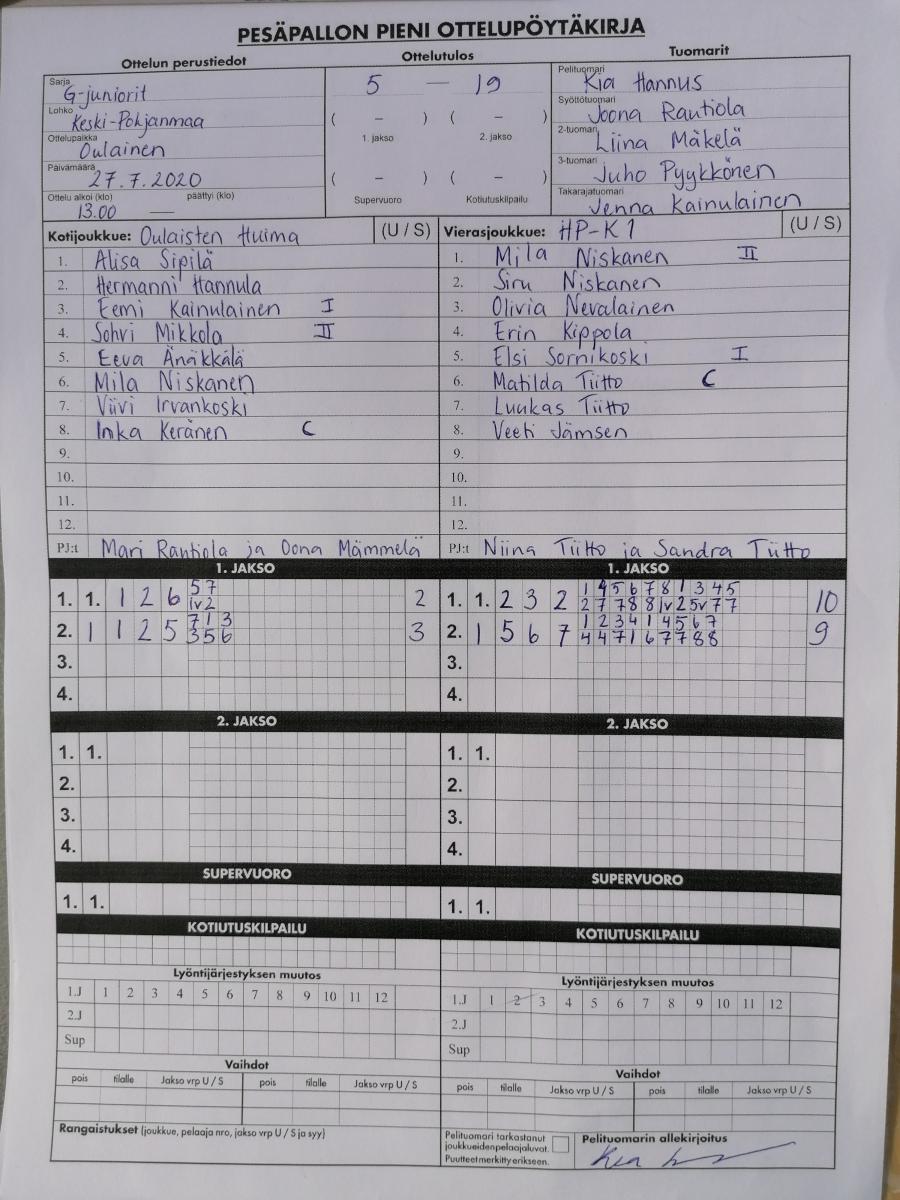 PESÄPALLON PIENI OTTELUPÖYTÄKIRJA
Ottelun perustiedot Ottelutulos Tuomarit
Sarja G-juniorit
Lohko Keski-Pohjanmaa
Ottelupaikka Oulainen
Päivämäärä 27.7.2020
Ottelu alkoi (klo) 13.00 päättyi (klo) —
5 — 19
( – ) ( – )
1. jakso 2. jakso
( – ) ( – )
Supervuoro Kotiutuskilpailu
Pelituomari Kia Hannus
Syöttötuomari Joona Rautiola
2-tuomari Liina Mäkelä
3-tuomari Juho Pyykkönen
Takarajatuomari Jenna Kainulainen
Kotijoukkue: Oulaisten Huima (U / S)
1. Alisa Sipilä
2. Hermanni Hannula
3. Eemi Kainulainen I
4. Sohvi Mikkola II
5. Eeva Änäkkälä
6. Mila Niskanen
7. Viivi Irvankoski
8. Inka Keränen C
9.
10.
11.
12.
PJ:t Mari Rautiola ja Oona Mämmelä
Vierasjoukkue: HP-K1 (U / S)
1. Mila Niskanen II
2. Siru Niskanen
3. Olivia Nevalainen
4. Erin Kippola
5. Elsi Sornikoski I
6. Matilda Tiitto C
7. Luukas Tiitto
8. Veeti Jämsen
9.
10.
11.
12.
PJ:t Niina Tiitto ja Sandra Tiitto
1. JAKSO
1. 1. 1 2 6 5 7 2
1v 2
2. 1 1 2 5 7 1 3 3
3 5 6
3.
4.
2. JAKSO
1. 1.
2.
3.
4.
SUPERVUORO
1. 1.
KOTIUTUSKILPAILU
Lyöntijärjestyksen muutos
1.J 1 2 3 4 5 6 7 8 9 10 11 12
2.J
Sup
Vaihdot
pois tilalle Jakso vrp U / S pois tilalle Jakso vrp U / S
Rangaistukset (joukkue, pelaaja nro, jakso vrp U / S ja syy)
1. JAKSO
1. 1. 2 3 2 1 4 5 6 7 8 1 3 4 5 10
2 7 7 8 8 1v 2 5v 7 7
2. 1 5 6 7 1 2 3 4 1 4 5 6 7 9
4 4 7 1 6 7 7 8 8
3.
4.
2. JAKSO
1. 1.
2.
3.
4.
SUPERVUORO
1. 1.
KOTIUTUSKILPAILU
Lyöntijärjestyksen muutos
1.J 1 2 3 4 5 6 7 8 9 10 11 12
2.J
Sup
Vaihdot
pois tilalle Jakso vrp U / S pois tilalle Jakso vrp U / S
Pelituomari tarkastanut
joukkueiden pelaajaluvat.
Puutteet merkitty erikseen.
Pelituomarin allekirjoitus
Kia